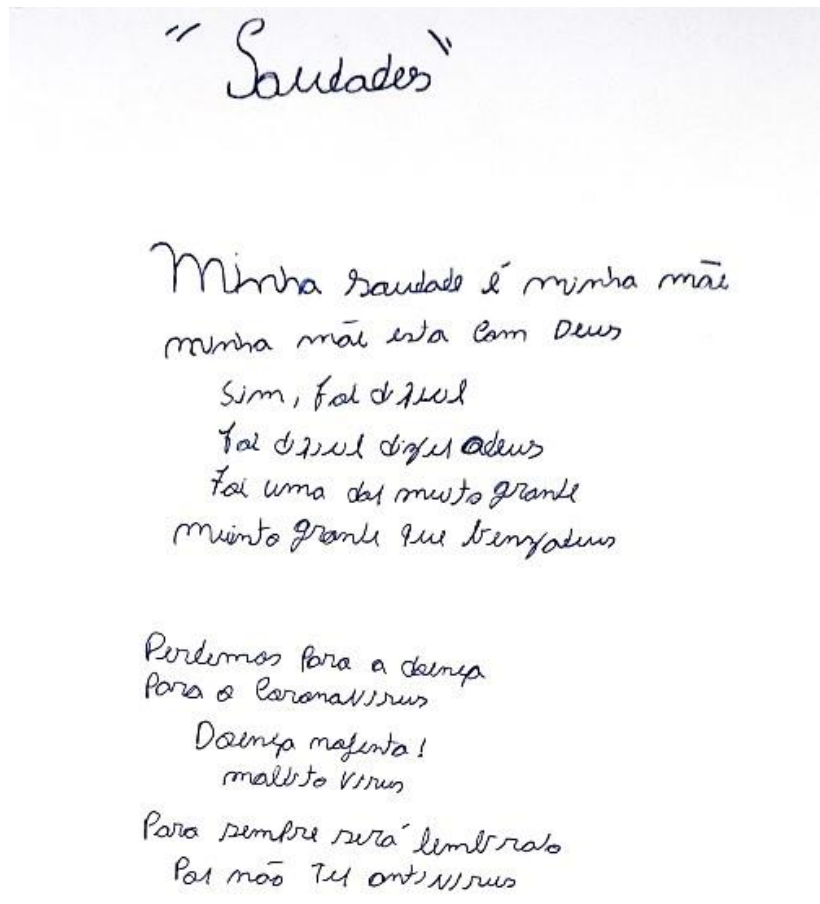 " Saudades "
Minha saudade é minha mãe
minha mãe esta com Deus
Sim, foi dificil
foi dificil dizer adeus
Foi uma dor muito grande
muinto grande que benzadeus
Perdemos Para a doença
Para o CoronaVirus
Doença nojenta!
maldito Virus
Para sempre será lembrado
Por não Ter antiVirus